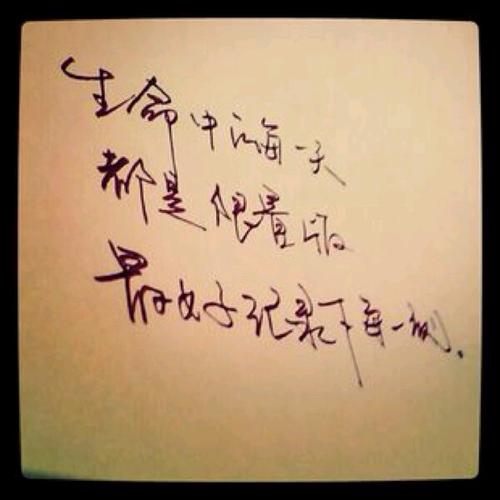 生命中的每一天
都是限量版
最好好记录下每一刻.